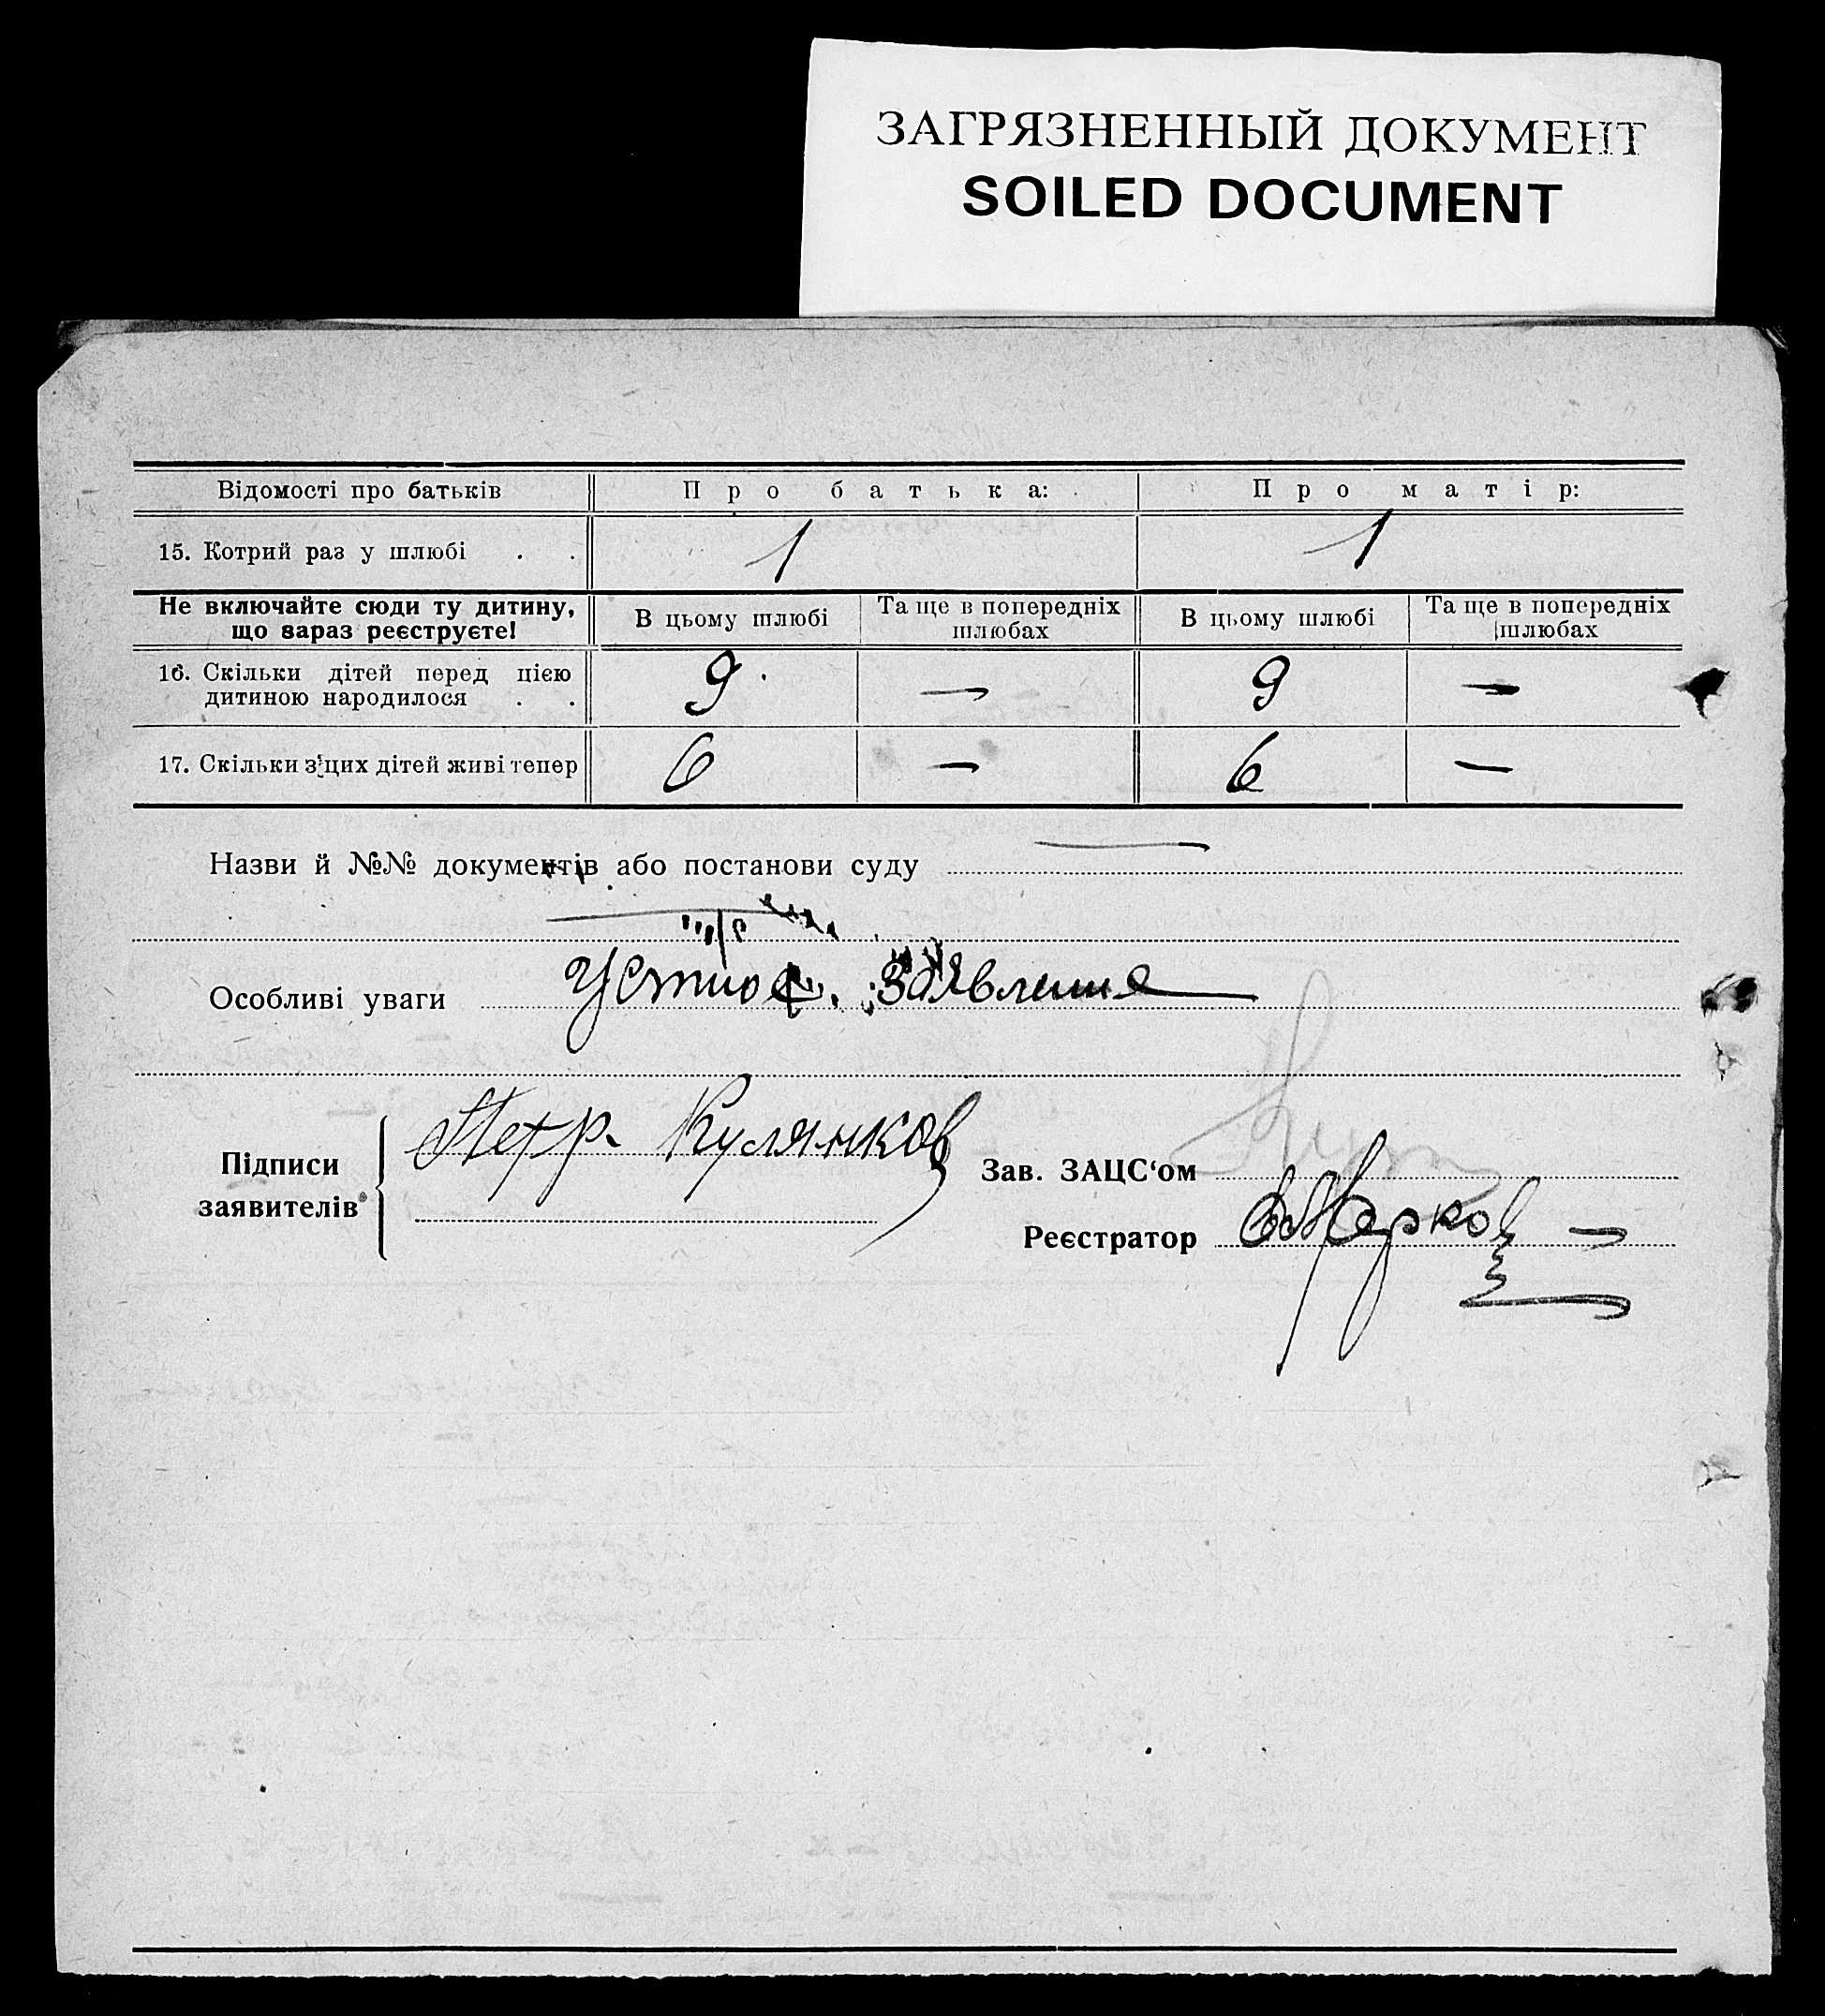 ЗАГРЯЗНЕННЫЙ ДОКУМЕНТ
SOILED DOCUMENT
Відомості про батьків Про батька: Про матір:
15. Котрий раз у шлюбі . . 1 1
Не включайте сюди ту дитину, що зараз реєструєте! В цьому шлюбі Та ще в попередніх шлюбах В цьому шлюбі Та ще в попередніх шлюбах
16. Скільки дітей перед цією
дитиною народилося . . 9 — 9 —
17. Скільки з цих дітей живі тепер 6 — 6 —
Назви й №№ документів або постанови суду —
Особливі уваги Устное заявление
Підписи
заявителів
Петр Кулянков
Зав. ЗАЦС‘ом
Реєстратор Марков